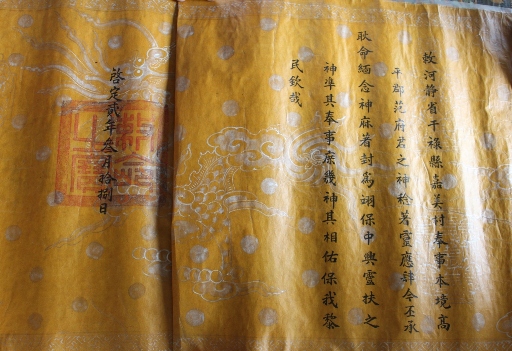 敕河静省干禄縣嘉美村奉事本境高
平郡范府君之神稔著靈應肆今丕承
耿命緬念神庥著封爲翊保中興靈扶之
神準其奉事庶幾神其相佑保我黎
民欽哉
啓定貳年叁月拾捌日
敕命之寶